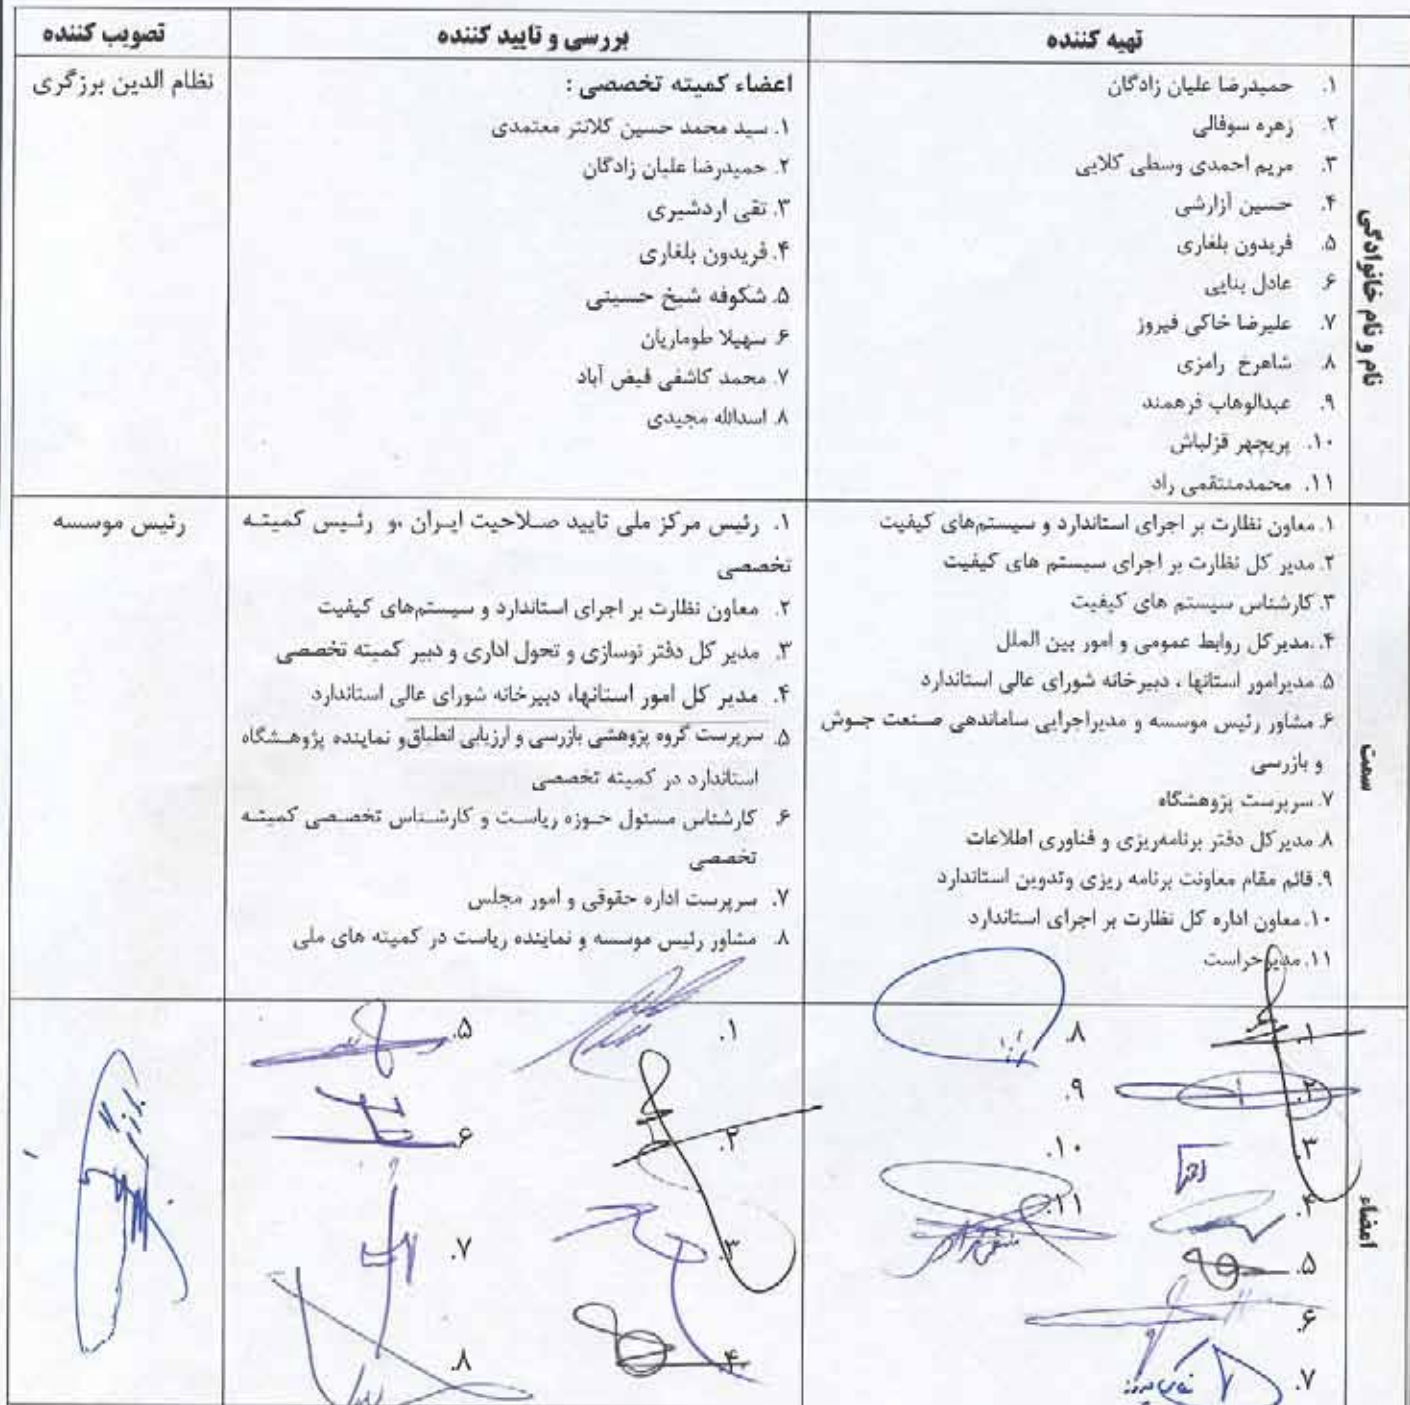 تهیه کننده
بررسی و تایید کننده
تصویب کننده
نام و نام خانوادگی
۱. حمیدرضا علیان زادگان
۲. زهره سوفالی
۳. مریم احمدی وسطی کلایی
۴. حسین آزارشی
۵. فریدون بلغاری
۶. عادل بنایی
۷. علیرضا خاکی فیروز
۸. شاهرخ رامزی
۹. عبدالوهاب فرهمند
۱۰. پریچهر قزلباش
۱۱. محمدمنتقمی راد
اعضاء کمیته تخصصی :
۱. سید محمد حسین کلانتر معتمدی
۲. حمیدرضا علیان زادگان
۳. تقی اردشیری
۴. فریدون بلغاری
۵. شکوفه شیخ حسینی
۶. سهیلا طوماریان
۷. محمد کاشفی فیض آباد
۸. اسدالله مجیدی
نظام الدین برزگری
سمت
۱. معاون نظارت بر اجرای استاندارد و سیستم‌های کیفیت
۲. مدیر کل نظارت بر اجرای سیستم های کیفیت
۳. کارشناس سیستم های کیفیت
۴. .مدیرکل روابط عمومی و امور بین الملل
۵. مدیرامور استانها ، دبیرخانه شورای عالی استاندارد
۶. مشاور رئیس موسسه و مدیراجرایی ساماندهی صنعت جوش
و بازرسی
۷. سرپرست پژوهشگاه
۸. مدیرکل دفتر برنامه‌ریزی و فناوری اطلاعات
۹. قائم مقام معاونت برنامه ریزی وتدوین استاندارد
۱۰. معاون اداره کل نظارت بر اجرای استاندارد
۱۱. مدیرحراست
۱. رئیس مرکز ملی تایید صلاحیت ایران ،و رئیس کمیته
تخصصی
۲. معاون نظارت بر اجرای استاندارد و سیستم‌های کیفیت
۳. مدیر کل دفتر نوسازی و تحول اداری و دبیر کمیته تخصصی
۴. مدیر کل امور استانها، دبیرخانه شورای عالی استاندارد
۵. سرپرست گروه پژوهشی بازرسی و ارزیابی انطباق و نماینده پژوهشگاه
استاندارد در کمیته تخصصی
۶. کارشناس مسئول حوزه ریاست و کارشناس تخصصی کمیته
تخصصی
۷. سرپرست اداره حقوقی و امور مجلس
۸. مشاور رئیس موسسه و نماینده ریاست در کمیته های ملی
رئیس موسسه
امضاء
۱.
۲.
۳.
۴.
۵.
۶.
۷.
۸.
۹.
۱۰.
۱۱.
۱.
۲.
۳.
۴.
۵.
۶.
۷.
۸.